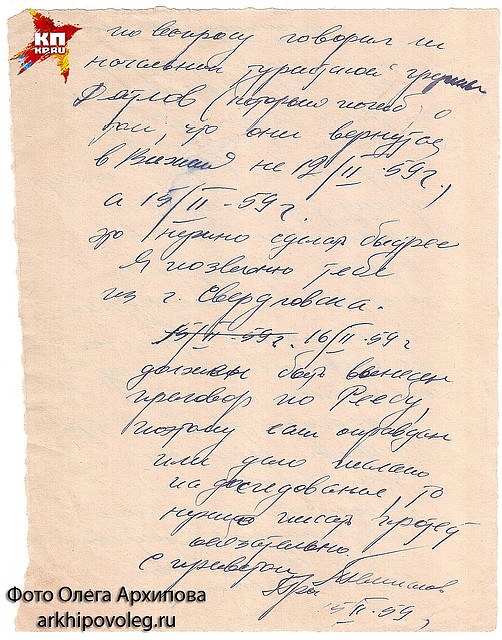 КП
KP.RU
по вопросу говорил ли
начальник туристской группы
Дятлов (который погиб) о
том, что они вернутся
в Вижай не 12/II-59 г.,
а 15/II-59 г.
это нужно сделать быстрее
Я позвоню тебе
из г. Свердловска.
15/II-59 г. 16/II-59 г
должен быть вынесен
приговор по Реесу,
поэтому если оправдан
или дело послано
на доследование, то
нужно писать протест
обязательно.
С приветом
Про
5/II-59,
Фото Олега Архипова
arkhipovoleg.ru